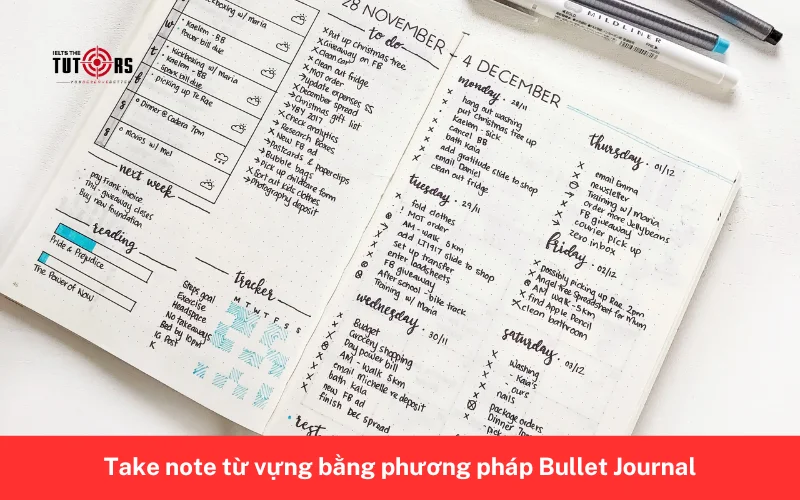 IELTS THE
TUTORS
kickboxing w/ maria
W
Kaelem - BB
Power bill due
t
Kickboxing w/ Maria
Kaelem - BB
Spark bill due
picking up Te Rae
Dinner @ Cadera 7pm
S
movies w/ mel
next week
pay frank invoice
Thu: giveaway closes
Buy new foundation
reading
Pride & Prejudice
The Power of Now
28 NOVEMBER
to do
x Put up christmas tree
x Giveaway on FB
x Clean car
x Clean out fridge
x MOT order
→ update expenses SS
x December spread
→ Christmas gift list
→ YBY 2017
x Check analytics
→ Research Boxes
x New FB ad
→ Postcards & paperclips
→ Bubble bags
→ pick up childcare form
x Sort out kids clothes
→ Photography deposit
tracker
M T W T F S S
Steps goal
Exercise
Headspace
No takeaways
Bed by 10pm
IG Post
K
4 DECEMBER
monday · 28/11
x hang out washing
x put christmas tree up
x Kaelem - sick
x cancel BB
x bath Kaia
x add gratitude slide to shop
x email Daniel
x clean out fridge
tuesday · 29/11
x fold clothes
MOT order
AM - walk 5km
add LT1917 slide to shop
set up transfer
x enter loadsheets
x FB giveaway
After school - bike track
Training w/ Maria
wednesday · 30/11
x Budget
x Grocery shopping
x Day power bill
AM - walk 5km
x email michelle re deposit
x bath kaia
x new FB ad
x finish Dec spread
rest
thursday · 01/12
x email Emma
x newsletter
Training w/ maria
→ order more Jellybeans
x FB giveaway
x courier pick up
→ zero inbox
friday · 02/12
x possibly picking up Rae 2pm
x Angel tree Spreadsheet for mum
AM walk 5km
x find Apple Pencil
x clean bathroom
saturday · 03/12
x washing
x - Kaia's
x - ours
x nails
package orders
Dinner 7pm
MILDLINER
Take note từ vựng bằng phương pháp Bullet Journal